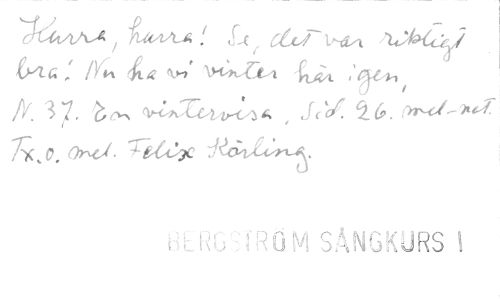 Hurra, hurra! Se, det var riktigt
bra! Nu ha vi vinter här igen,
N. 37. En vintervisa, Sid. 26. mel-not.
Tx. o. mel. Felix Körling.
BERGSTRÖM SÅNGKURS I